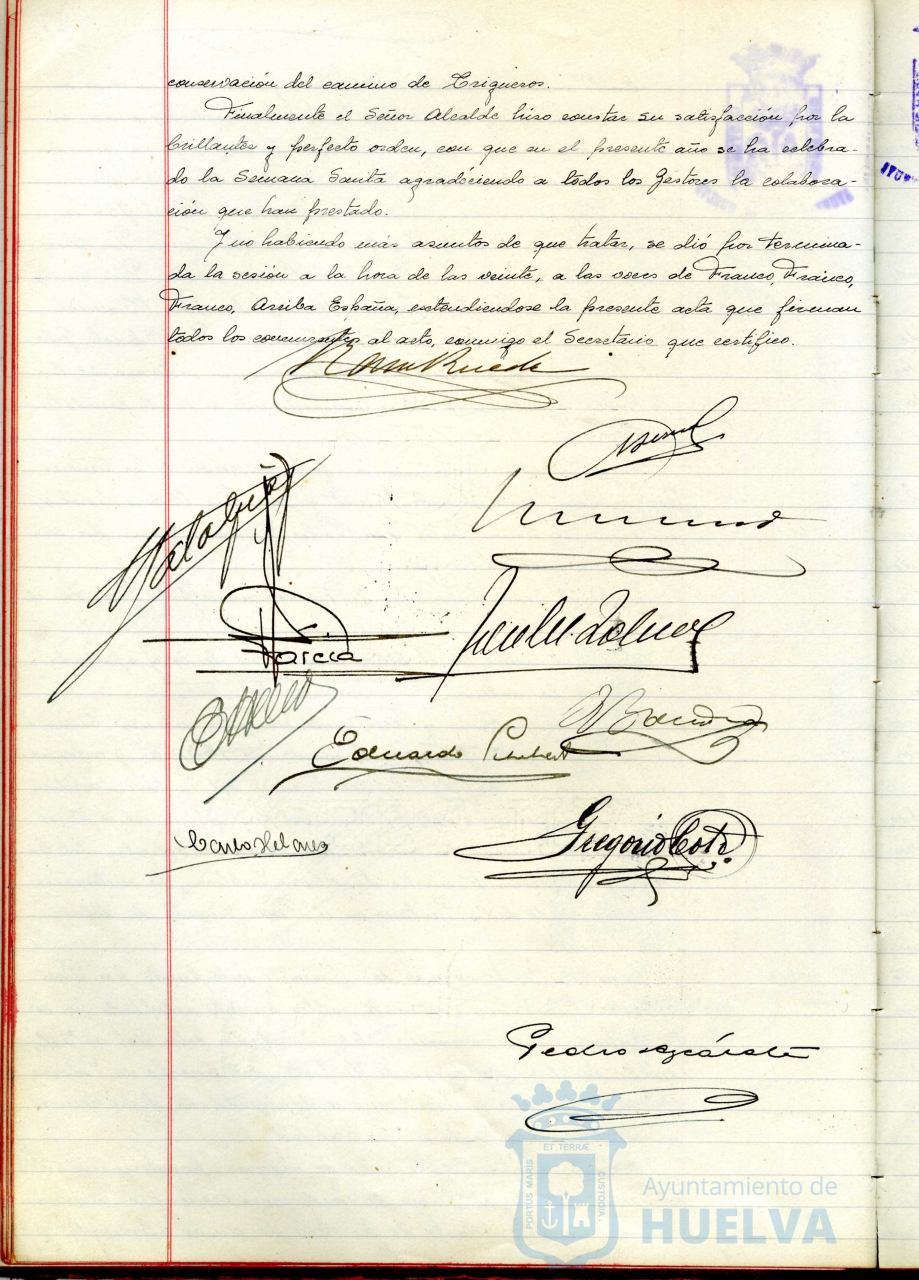 conservación del camino de Trigueros.
Finalmente el Señor Alcalde hizo constar su satisfacción por la
brillantez y perfecto orden, con que en el presente año se ha celebra-
do la Semana Santa agradeciendo a todos los Gestores la colabora-
ción que han prestado.
Y no habiendo más asuntos de que tratar, se dió por termina-
da la sesión a la hora de las veinte, a las voces de Franco, Franco,
Franco, Arriba España, extendiendose la presente acta que firman
todos los concurrentes al acto, conmigo el Secretario que certifico.
García
Eduardo
Gregorio
Pedro
ET TERRÆ
PORTUS MARIS
CUSTODIA
Ayuntamiento de
HUELVA